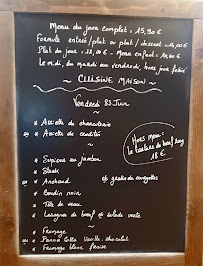 Menu du jour complet : 15,90 €
Formule entrée/plat ou plat/dessert 14,00 €
Plat du jour : 11,00 € - Menu enfant : 10,00 €
Le midi, du mardi au vendredi, hors jour férié
~ CUISINE MAISON ~
Vendredi 23 Juin
* Assiette de charcuterie
ou * Assiette de crudités
~
Hors menu :
Le tartare de bœuf
18 €
* Supions au jambon
* Steak
* Anchaud et gratin de courgettes
* Boudin noir
* Tête de veau
* Lasagnes de bœuf et salade verte
~
* Fromage
ou * Panna Cotta Vanille, chocolat
* Fromage blanc fraise